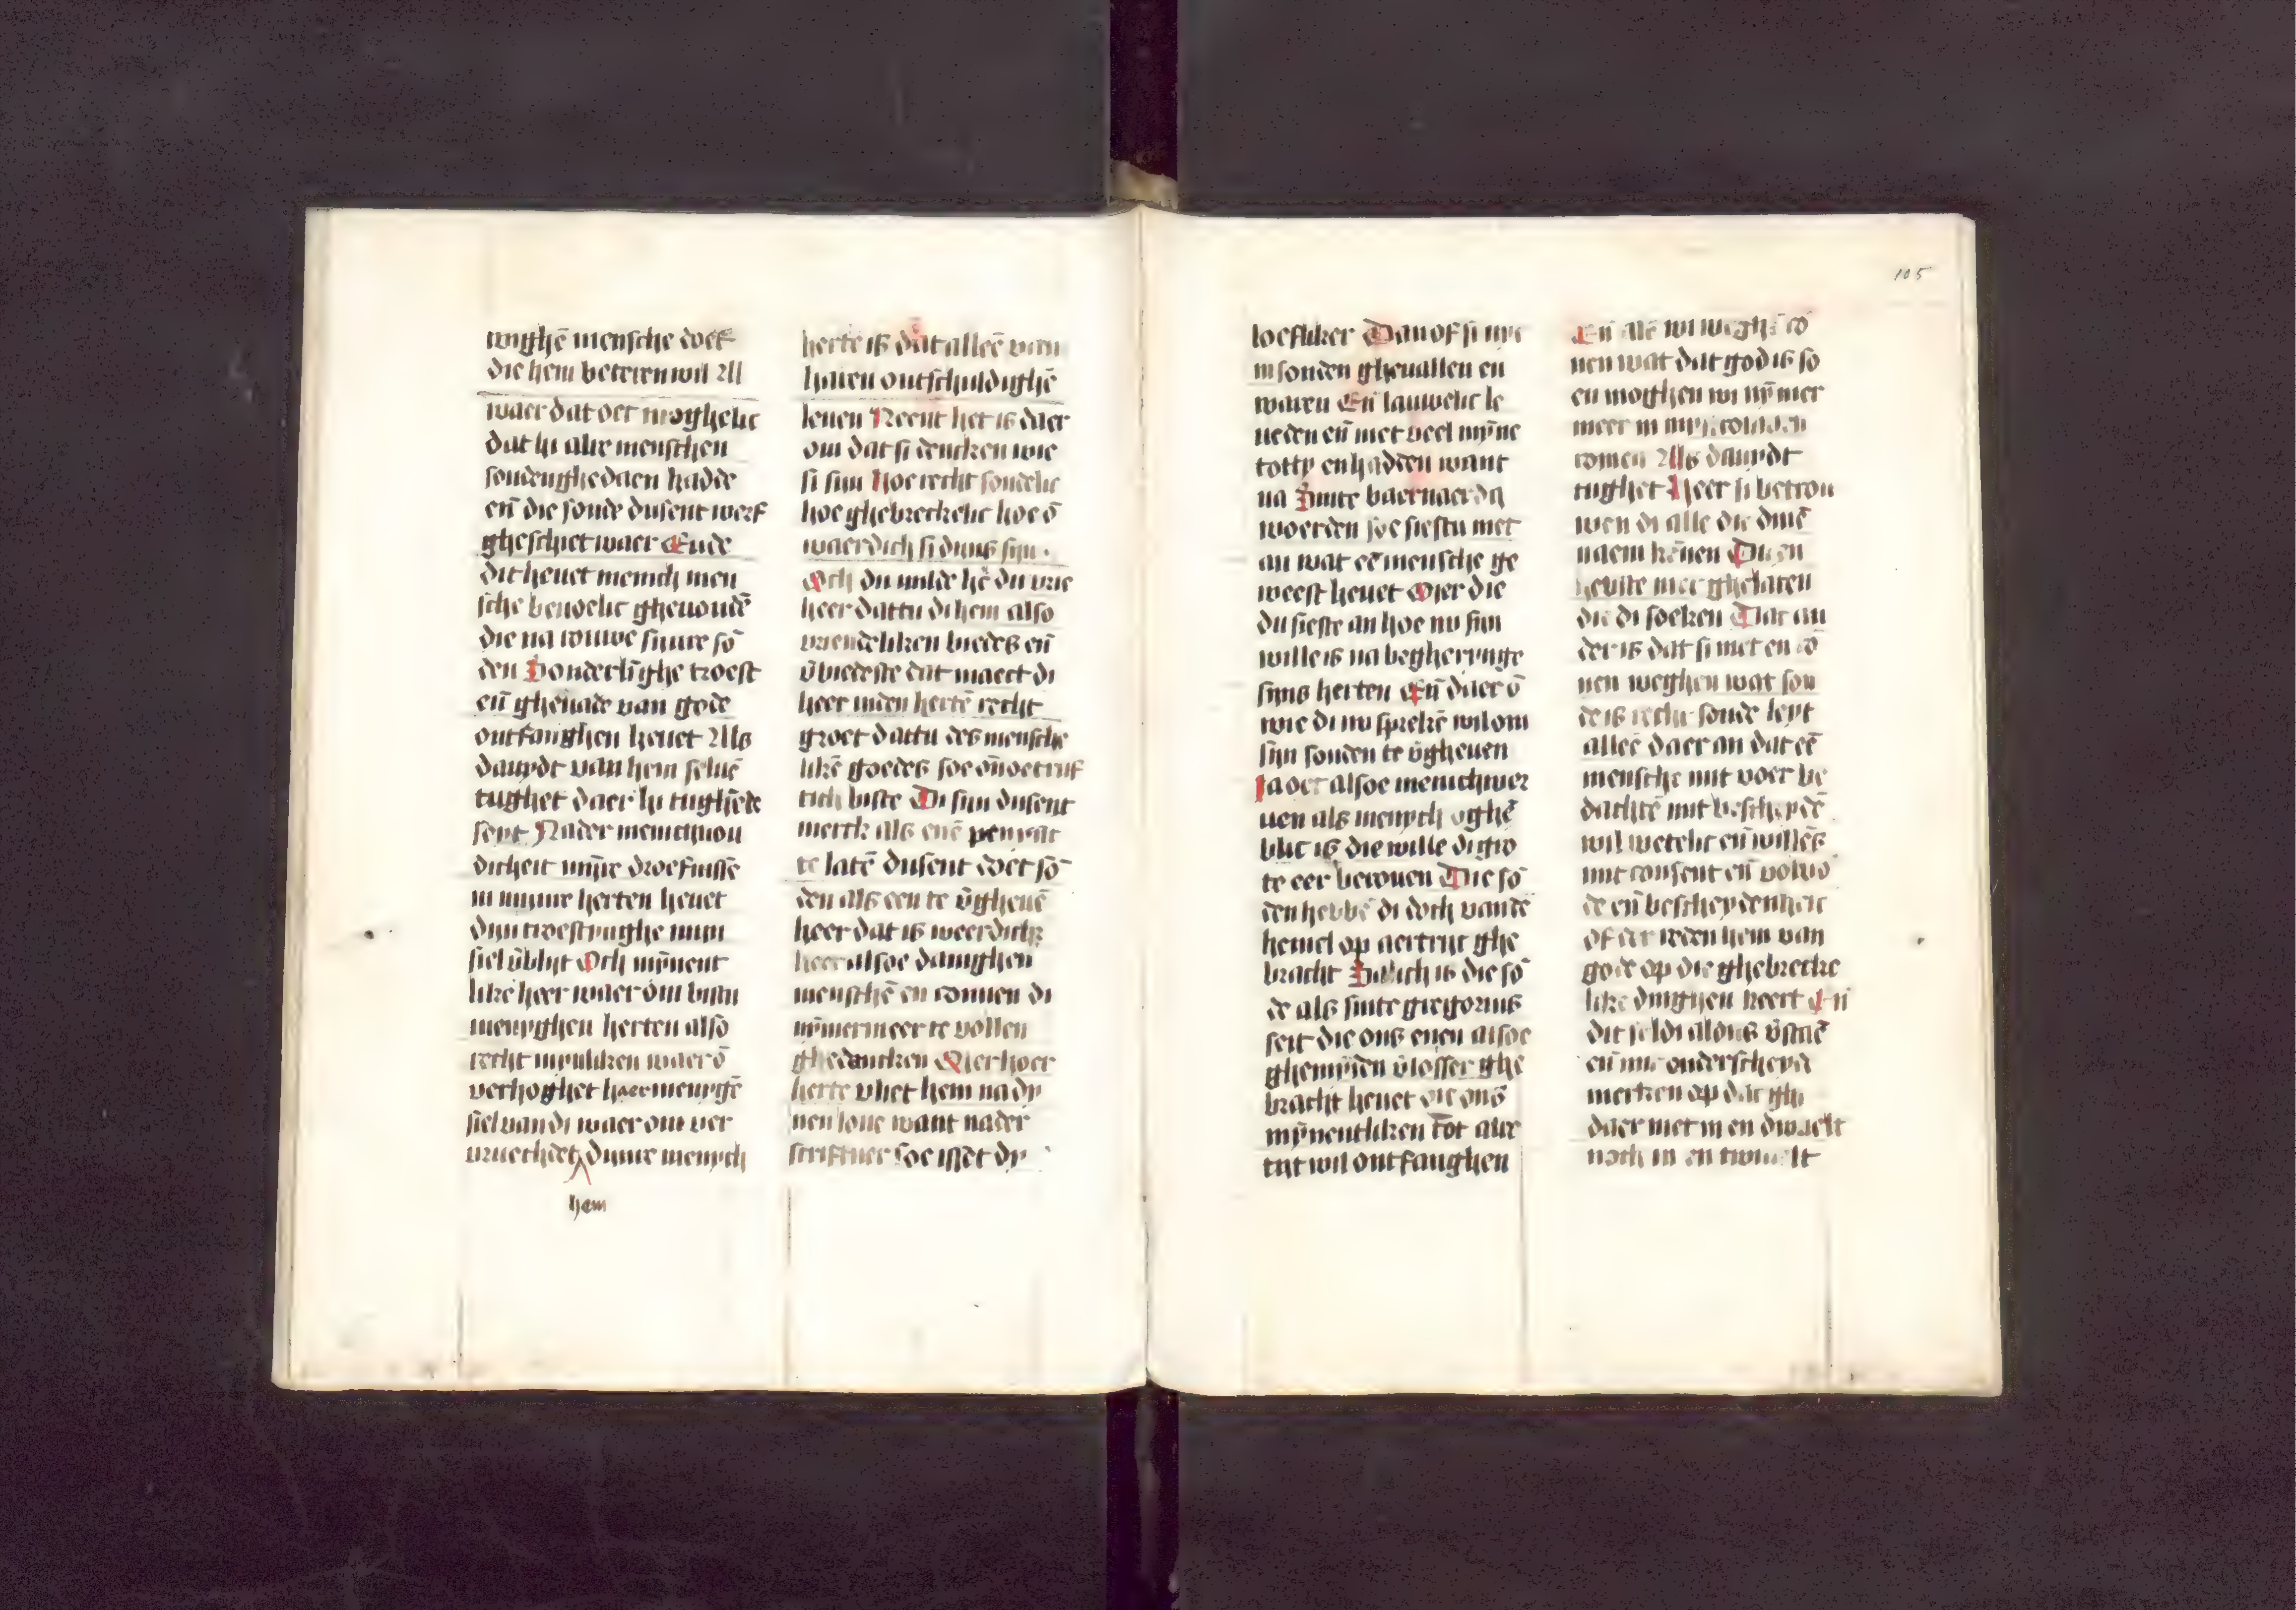 wighē mensche doet
die hem beteren wil All
waer dat oet moghelic
dat hi alre menschen
sonden ghedaen hadde
eñ die sonde dusent werf
ghesciet waer Ende
dit heuet menich men
sche beuoelic gheuondē
die na rouwe sijnre sō
den Sonderlīghe troest
eñ ghenade van gode
ontfanghen heuet Als
dauydt van hem seluē
tughet daer hi tughēde
seyt Nader menichuou
dicheit mijnre droefnissē
in mijnre herten heuet
dijn troestynghe mijn
siel v̄blijt Och mȳnent
like heer waer om bistu
menyghen herten also
recht mynliken waer ō
verhoghet haer menygē
siel van di waer om ver
vruechdet dijnre menych
hem
herte is dat alleē van
haren ontschuldighē
leuen Neent het is daer
om dat si dencken wie
si sijn hoe recht sondelic
hoe ghebreckelic hoe ō
waerdich si dijns sijn
Och du milde hē du vrie
heer dattu di hem also
vriendeliken biedes eñ
v̄biedeste dat maect di
heer inden hertē recht
groet dattu des mensche
likē goedes soe
tich biste Di sijn dusent
merck als enē penninc
te latē dusent doet sō
den als een te v̄gheuē
heer dat is weerdich
heer alsoe danighen
menschē en connen di
nȳmermeer te vollen
ghedancken Mer hoer
herte vliet hem na dy
nen loue want nader
scriftuer soe isset dy
105
loefliker Dan of si nye
in sonden gheuallen en
waren Eñ lauwelic le
ueden eñ met veel mȳne
tottᵢ en hadden want
na Sinte baernaerdꝰ
woerden soe siestu met
an wat eē mensche ge
weest heuet Mer die
du sieste an hoe nv sijn
wille is na begherynge
sijns herten Eñ daer ō
wie di nv sprekē wil om
sijn sonden te v̄gheuen
Ja oec alsoe menichwer
uen als menych oghē
blic is die wille di gro
te eer berouen Die sō
den hebbē di doch vandē
hemel op aertrijc ghe
bracht Salich is die sō
de als sinte gregorius
seit die ons enen alsoe
ghemȳden v̄losser ghe
bracht heuet die ons
mȳnentliken tot alre
tijt wil ontfanghen
Eñ alē wi weghē cō
nen wat dat god is so
en moghen wi nȳmer
meer in
comen Als dauydt
tughet Heer si betrou
wen di alle die dinē
naem kēnen Du en
hebste niet ghelaten
die di soeken Dat an
der is dat si niet en cō
nen weghen wat son
de is recht sonde leyt
alleē daer an dat eē
mensche mit voer be
dachtē mit bescheydē
wil wetelic eñ willēs
mit consent eñ volwō
de eñ bescheydenheit
of der reden hem van
gode op die ghebrecke
like dinghen keert Eñ
dit seldi aldus v̄staē
eñ mit onderscheyt
merken op dat ghi
daer niet in en dwaelt
noch in en twiuelt